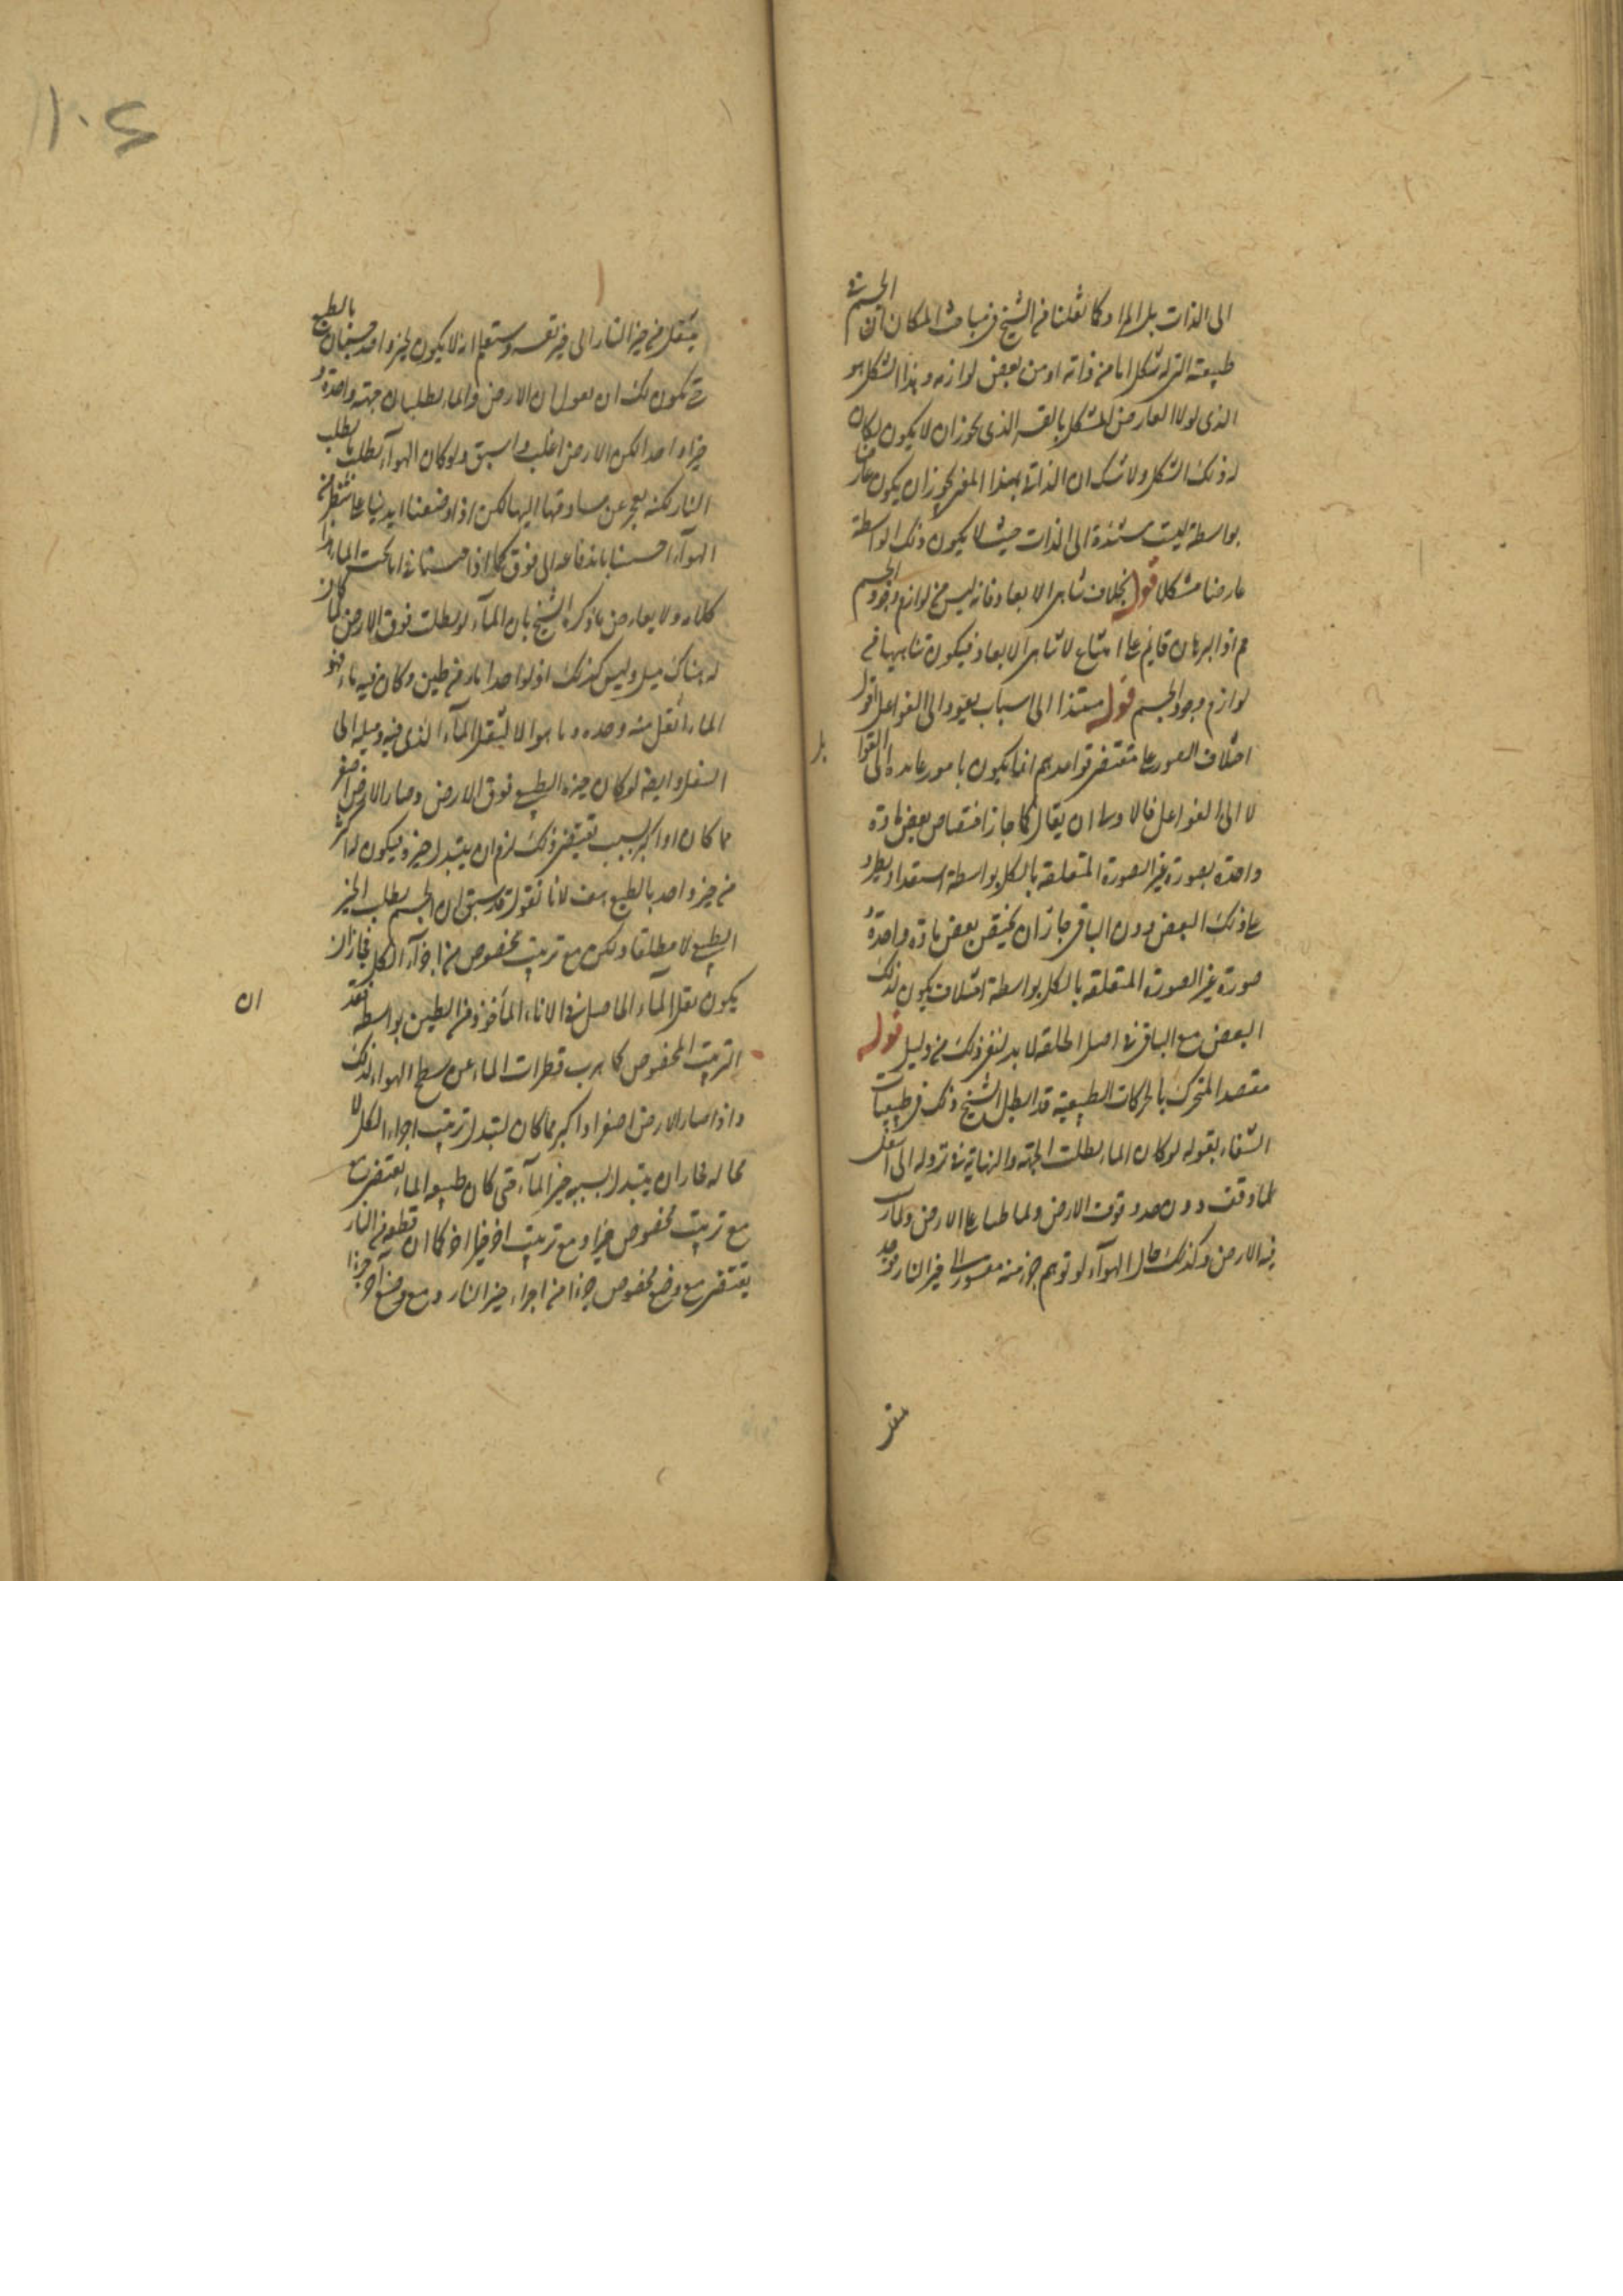 الى الذات بل الى المادة كما نقلنا من الشيخ فى مباحث المكان ان الجسم فى
طبيعته التى له شكل اما من ذاته او من بعض لوازمه و هذا الشكل هو
الذى لولا العارض المشكل بالقسر الذى يجوز ان لا يكون لكان
له ذلك الشكل ولا شك ان الذات بهذا المعنى يجوز ان يكون
بواسطة ليست مستندة الى الذات حيث لا يكون ذلك الواسطة
عارضا مشكلا قوله بخلاف تناهى الابعاد فانه ليس من لوازم وجود الجسم
اذ البرهان قايم على امتناع لا تناهى الابعاد فيكون تناهيها من
لوازم وجود الجسم قوله مستندا الى اسباب يعود الى الفواعل اقول
اختلاف الصور على مقتضى قواعدهم انما يكون بامور عايدة الى القوابل
لا الى الفواعل فالاولى ان يقال كما جاز اختصاص بعض مادة
واحدة بصورة غير الصورة المتعلقة بالكل بواسطة استعداد يطرء
على ذلك البعض دون الباقى جاز ان يختص بعض مادة واحدة
صورة غير الصورة المتعلقة بالكل بواسطة اختلاف يكون لذلك
البعض مع الباقى فى اصل الخلقة لا بد لنفى ذلك من دليل قوله
مقصد المتحرك بالحركات الطبيعية قد ابطل الشيخ ذلك فى طبيعيات
الشفاء بقوله لو كان الماء يطلب الجهة والنهاية فى نزوله الى اسفل
لما وقف دون حد وقوف الارض ولما طفا على الارض ولما رسب
فيه الارض وكذلك حال الهواء لو توهم جزء منه مقسورا الى حيز النار فوجد
منتقل
ينتقل من حيز النار الى حيز نفسه وستعلم انه لا يكون لحيز واحد جسمان بالطبع
حتى يكون لك ان تقول ان الارض والماء يطلبان جهة واحدة و
حيزا واحدا لكن الارض اغلب واسبق ولو كان الهواء يطلب ما يطلب
النار لكنه يعجز عن مساوقتها اليها لكن اذا وضعنا ايدينا على شطر من
الهواء احسسنا باندفاعه الى فوق كما اذا حبسناه فى اناء تحت الماء هذا
كلامه ولا يعارض ما ذكره الشيخ بان الماء لو بطلت فوق الارض لما كان
له هناك ميل وليس كذلك اذ لو اخذ اناء من طين وكان فيه ماء فهو مع
الماء اثقل منه وحده وما هو الا لثقل الماء الذى فيه وميله الى
السفل وايضا لو كان حيزه الطبيعى فوق الارض وصار الارض اصغر
مما كان او اكبر بسبب يقتضى ذلك لزم ان يتبدل حيزه فيكون له اكثر
من حيز واحد بالطبع هف لانا نقول قد سبق ان الجسم يطلب الحيز
الطبيعى لا مطلقا ولكن مع ترتيب مخصوص من اجزاء الكل فجاز ان
يكون ثقل الماء الحاصل فى الاناء المأخوذ من الطين بواسطة فقد
ان
الترتيب المخصوص كما يهرب قطرات الماء عن سطح الهواء لذلك
واذا صار الارض اصغر او اكبر مما كان لتبدل ترتيب اجزاء الكل لا
محالة فجاز ان يتبدل بسببه حيز الماء حتى كان طبيعة الماء يقتضى
مع ترتيب مخصوص حيزا ومع ترتيب اخر حيزا اخر كما ان قطعة من النار
يقتضى مع وضع مخصوص جزءا من اجزاء حيز النار ومع وضع آخر جزءا